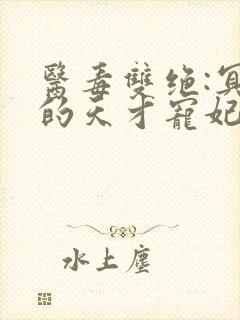 醫毒雙绝:冥
的天才寵妃
水上塵